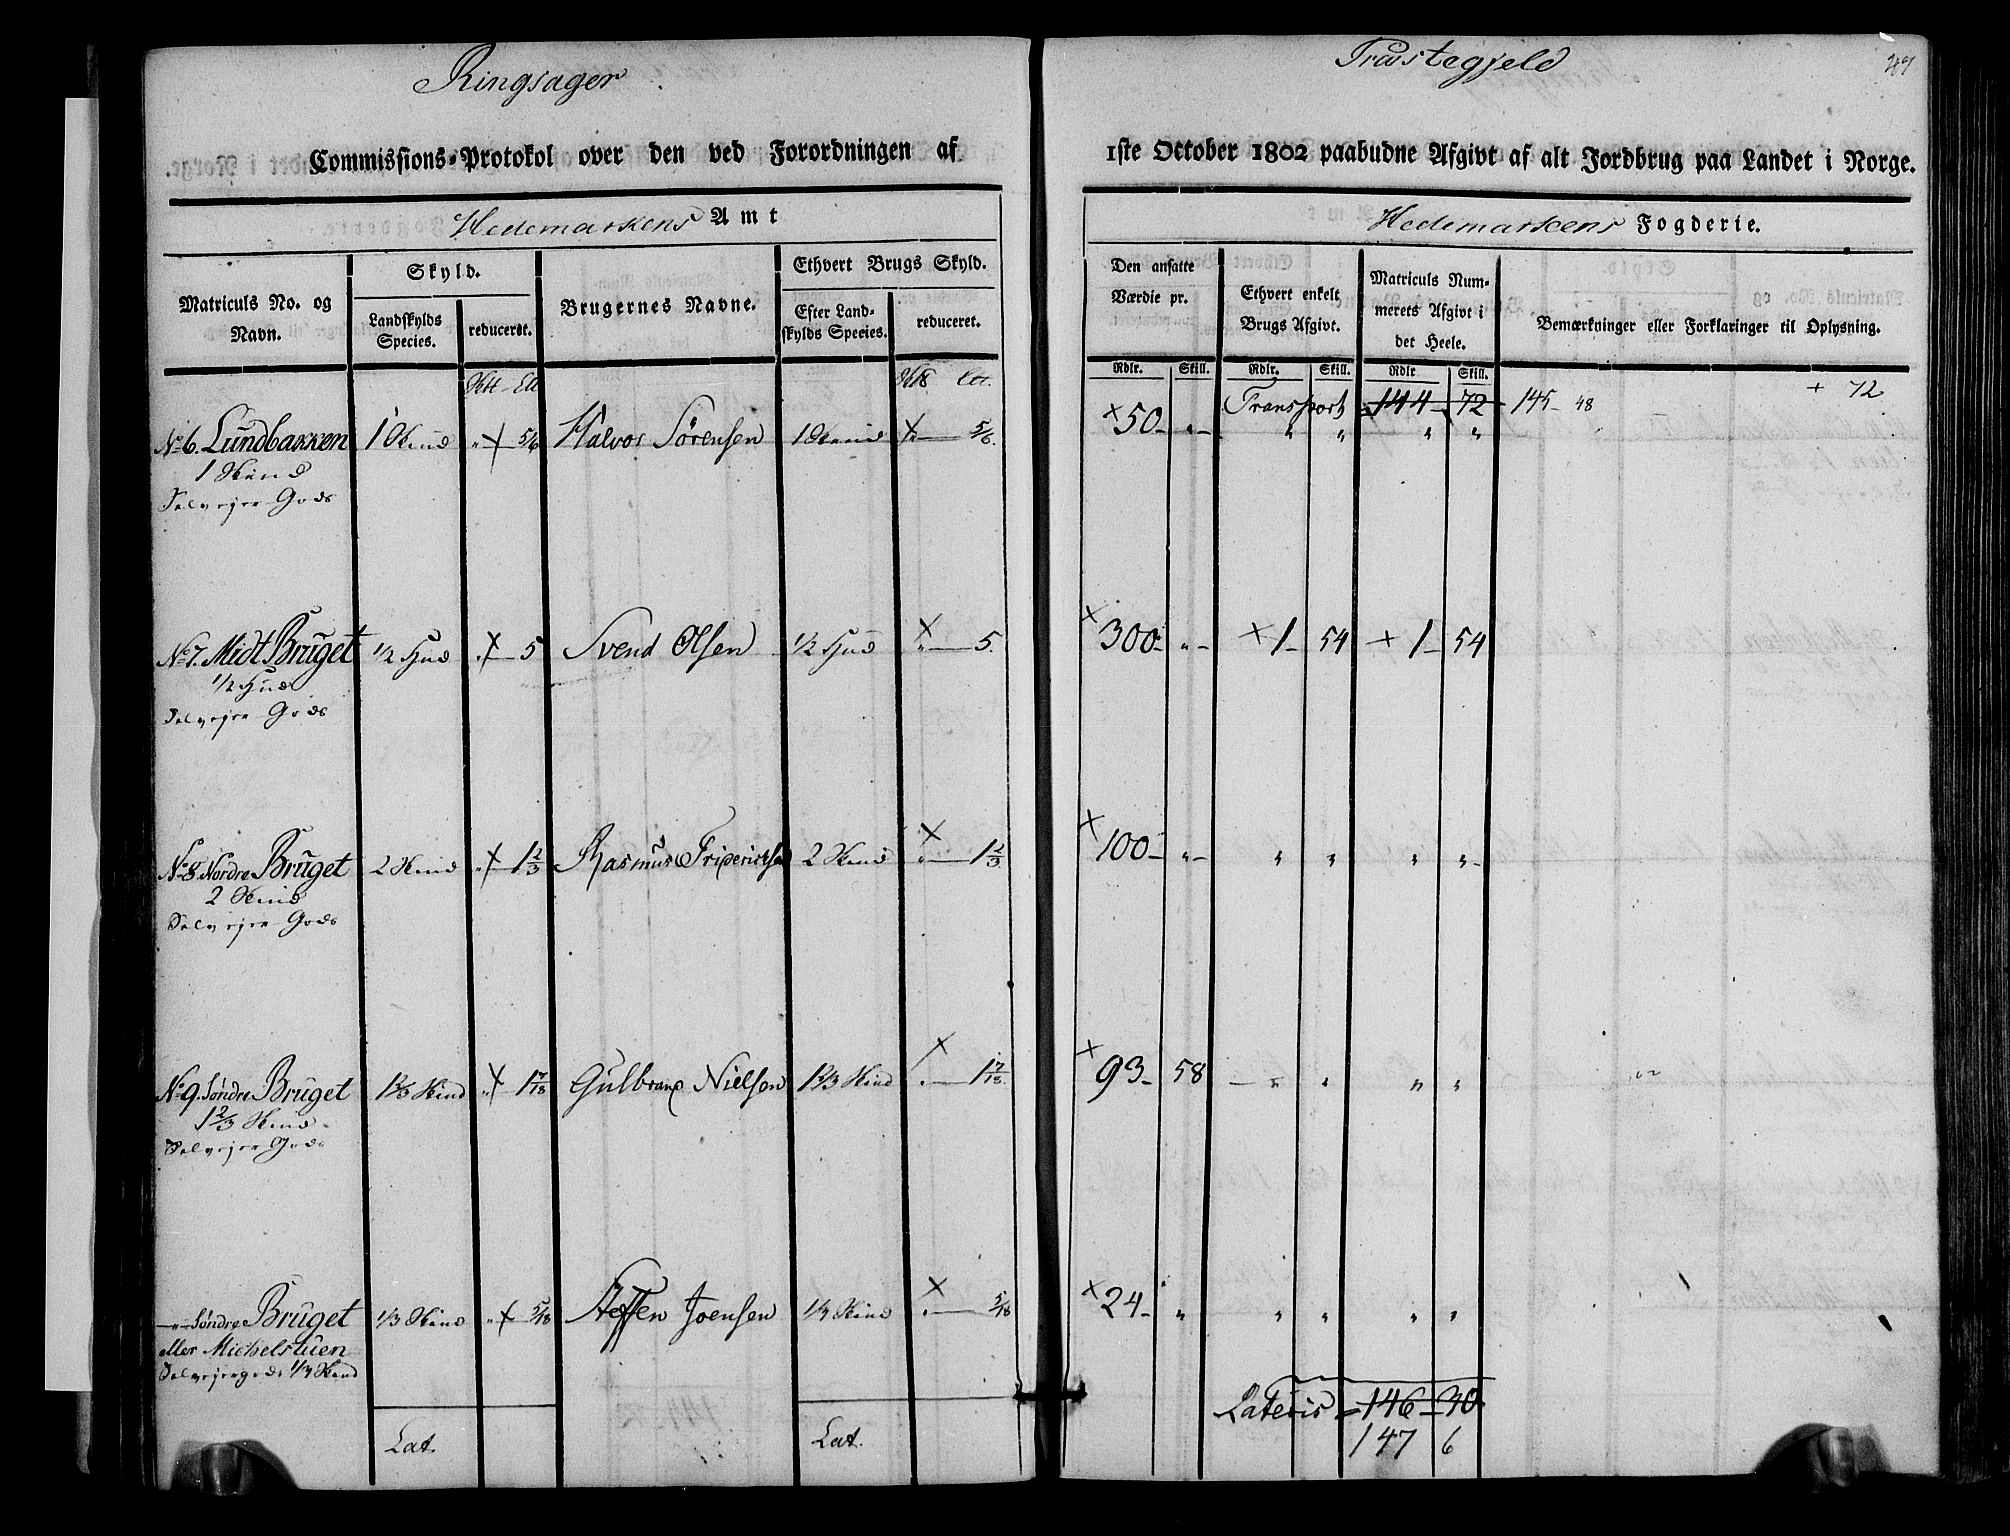 Ringsager
Præstegjeld
47
Commissions-Protokol over den ved Forordningen af
1ste October 1802 paabudne Afgivt af alt Jordbrug paa Landet i Norge.
Hedemarkens Amt
Hedemarkens Fogderie.
Matriculs No. og Navn.
Skyld.
Landskylds Species.
reduceret.
Brugernes Navne.
Ethvert Brugs Skyld.
Efter Landskylds Species.
reduceret.
Den ansatte Værdie pr.
Rdlr. Skill.
Ethvert enkelt Brugs Afgivt.
Rdlr. Skill.
Matriculs Nummerets Afgivt i det Heele.
Rdlr Skill.
Bemærkninger eller Forklaringer til Oplysning.
Transport 144 72 145 - 48 + 72
No 6. Lundbakken 1 Skind " 5/6 Halvor Sörensen 1 Skind " 5/6. × 50 - " - " " " "
1 Skind
Selvejer Gods
No 7. Midt Bruget 1/2 Hud " 5 Svend Olsen 1/2 Hud × " 5. × 300 - " - × 1 - 54 × 1 - 54
1/2 Hud
Selvejer Gods
No 8. Nordre Bruget 2 Skind " 1 2/3 Rasmus Fridericksen 2 Skind × " 1 2/3 × 100 - " - " " " " -
2 Skind
Selvejer Gods
No 9. Søndre Bruget 1 2/3 Skind " 1 7/18 Gulbrand Nielsen 1 2/3 Skind × " 1 7/18. × 93 - 58 " " " "
1 2/3 Skind
Selvejer Gods
— " — Søndre Bruget 1/3 Skind " 5/18 Steffen Joensen 1/3 Skind × " 5/18 × 24 - " " " " "
eller Michelstuen
Selvejergods 1/3 Skind
Lat. Lat. Lateris 146 - 30
147 6